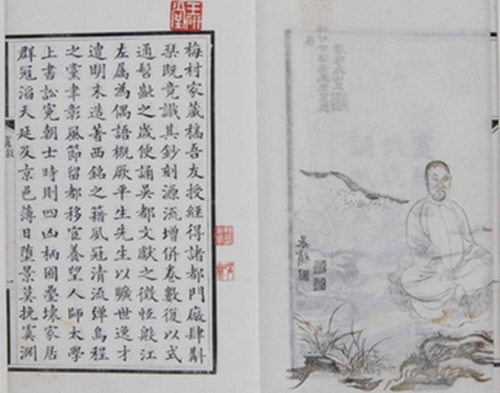 梅村家藏稿吾友授經得諸都門廠肆斠
栞既竟識其鈔刻源流增併卷數復以式
通髫齔之歲便誦吳都文獻之徵恆殷江
左屬為偶語概厥平生先生以曠世逸才
遭明末造著西銘之籍風冠清流彈烏程
之黨聿彰風節留都移宦養望人師太學
上書訟寃朝士時則四凶柄國壘壞家居
群寇滔天延及京邑薄日墮景莫挽寞淵